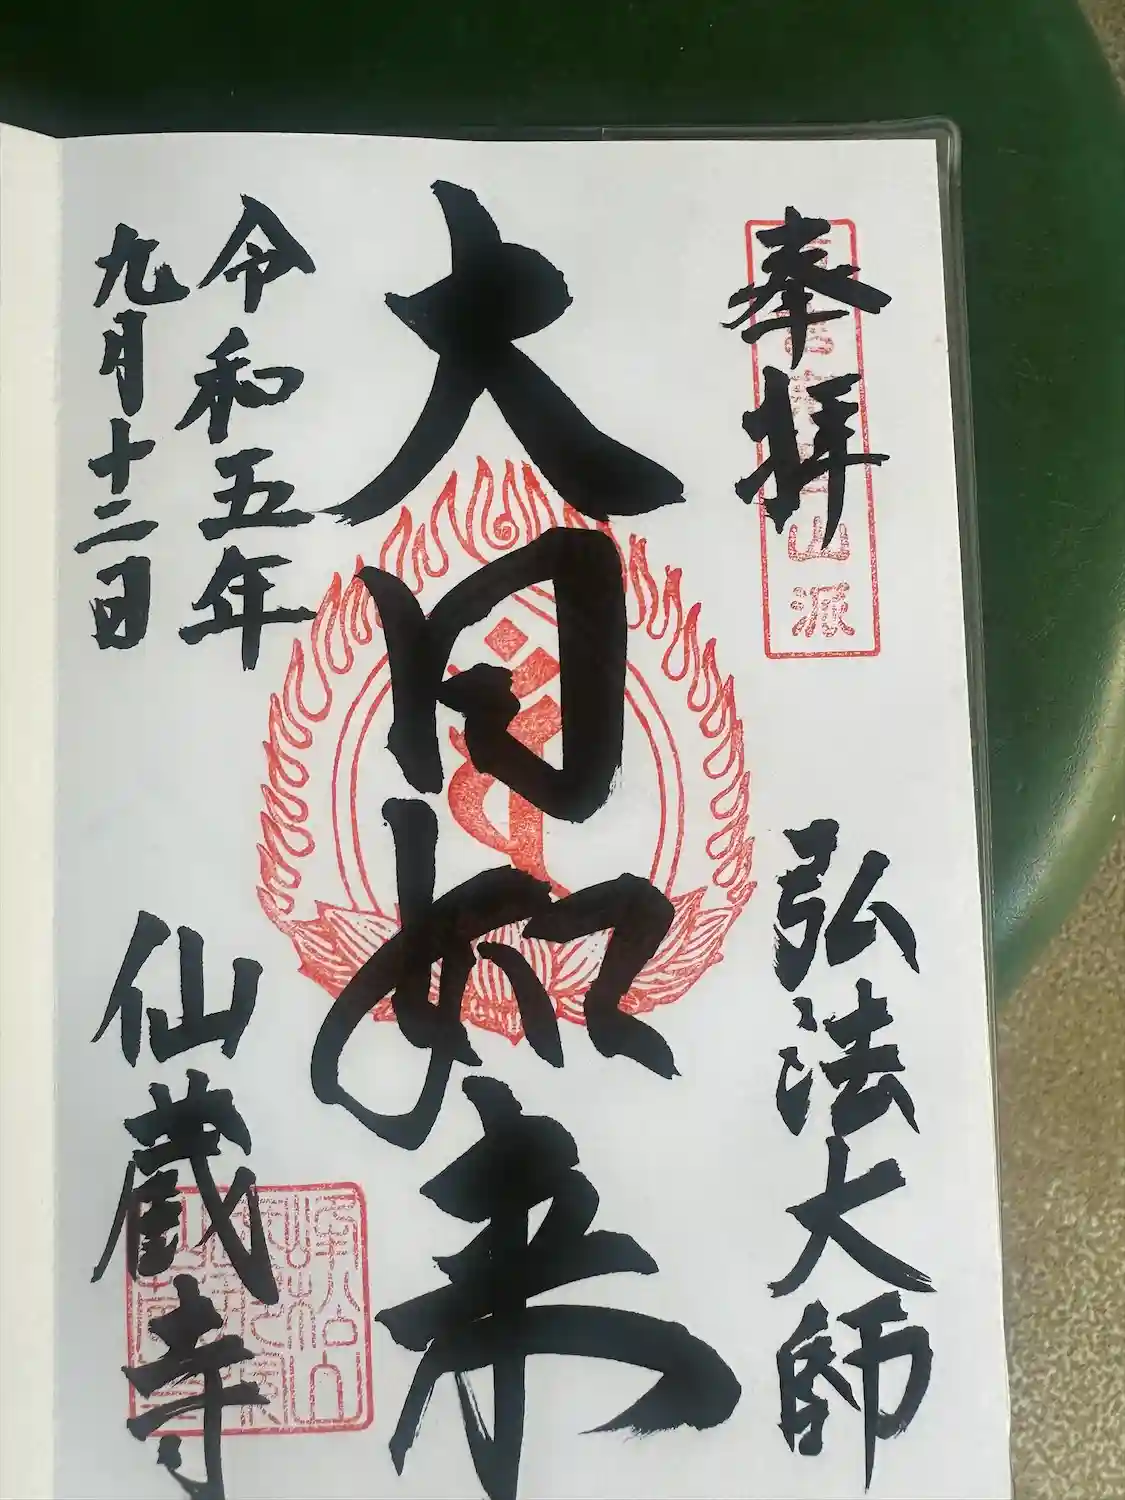 奉拝
山派
弘法大師
大日如来
令和五年
九月十二日
仙蔵寺